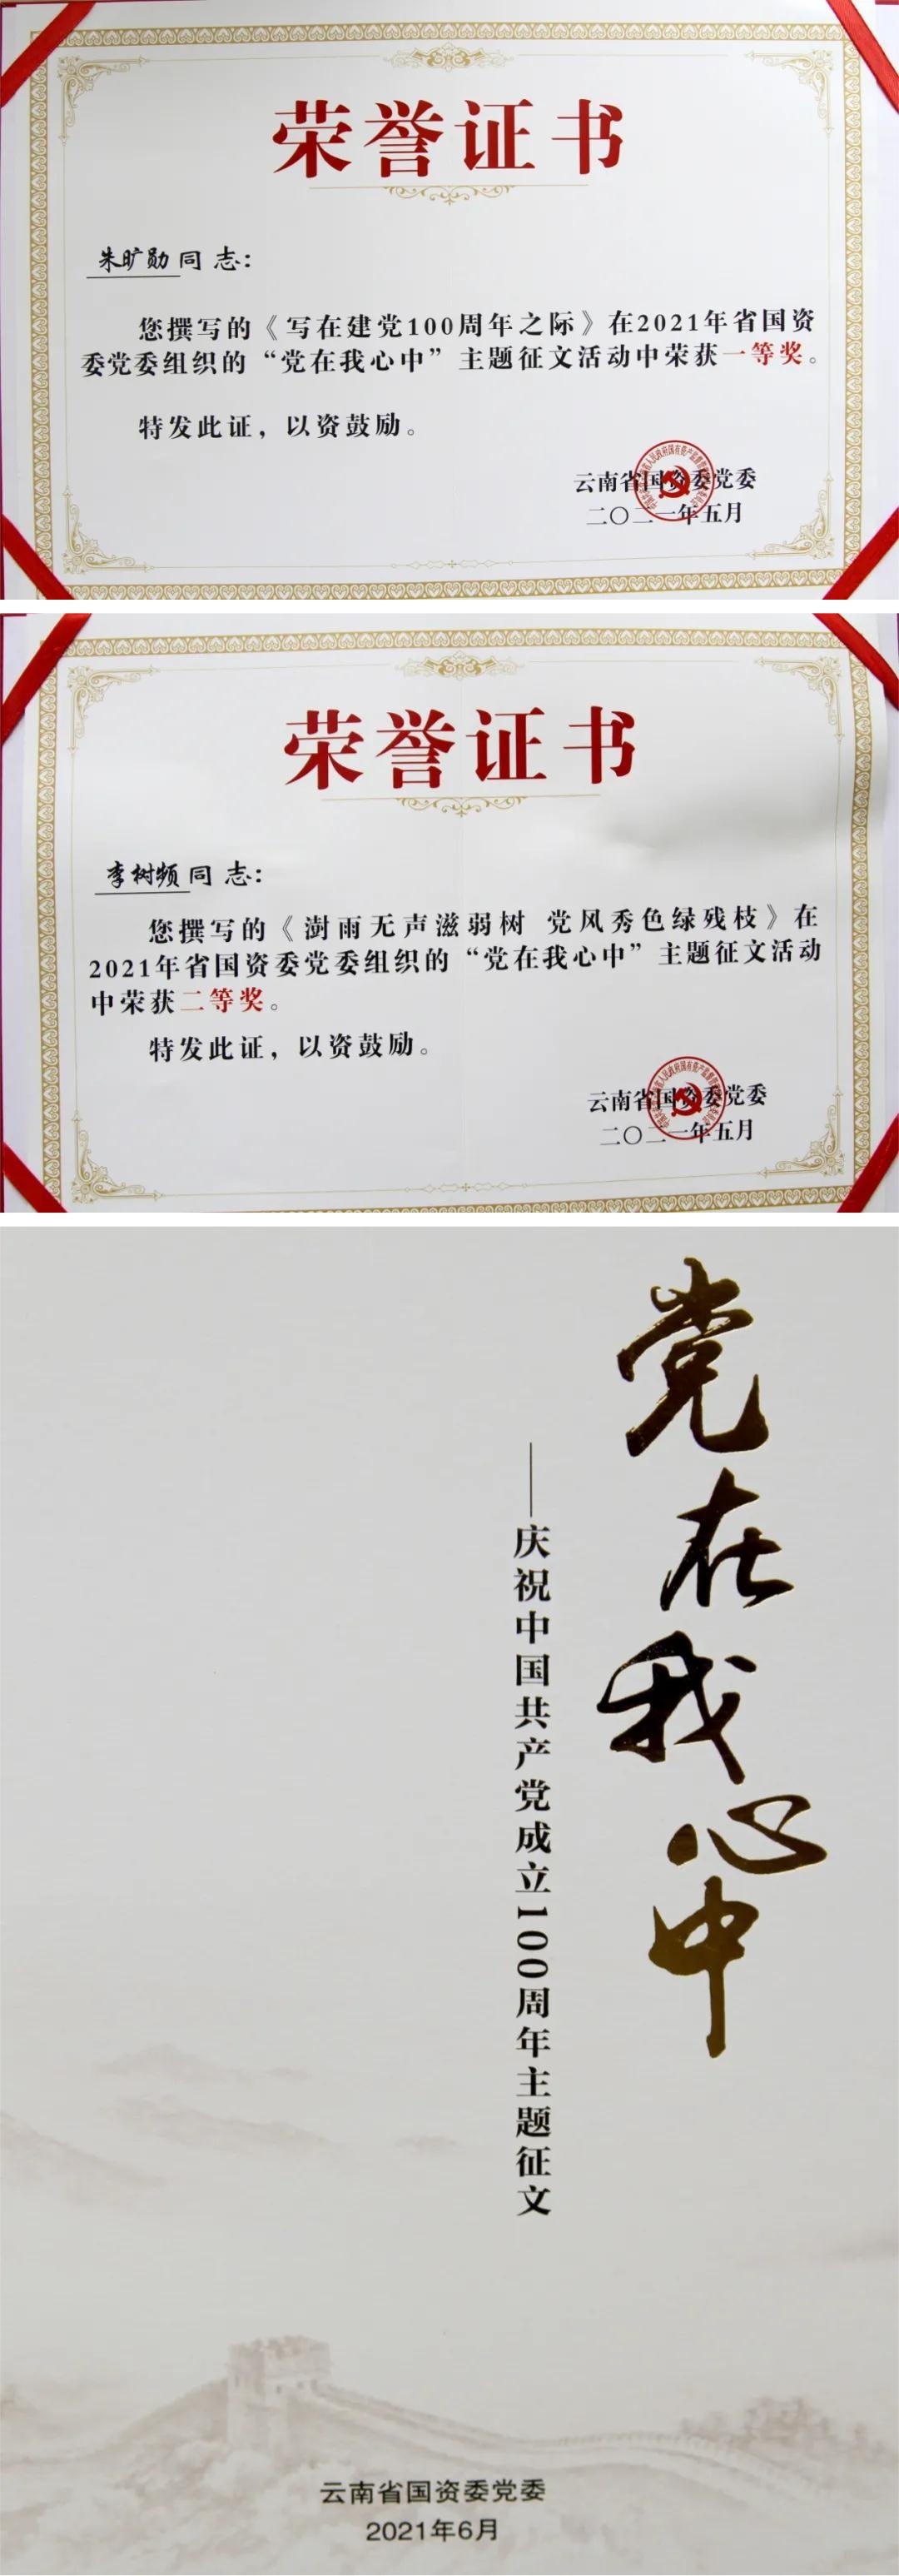 荣誉证书
朱旷勋同志：
您撰写的《写在建党100周年之际》在2021年省国资
委党委组织的“党在我心中”主题征文活动中荣获一等奖。
特发此证，以资鼓励。
云南省国资委党委
二〇二一年五月
荣誉证书
李树频同志：
您撰写的《澍雨无声滋弱树 党风秀色绿残枝》在
2021年省国资委党委组织的“党在我心中”主题征文活动
中荣获二等奖。
特发此证，以资鼓励。
云南省国资委党委
二〇二一年五月
党在我心中
——庆祝中国共产党成立100周年主题征文
云南省国资委党委
2021年6月